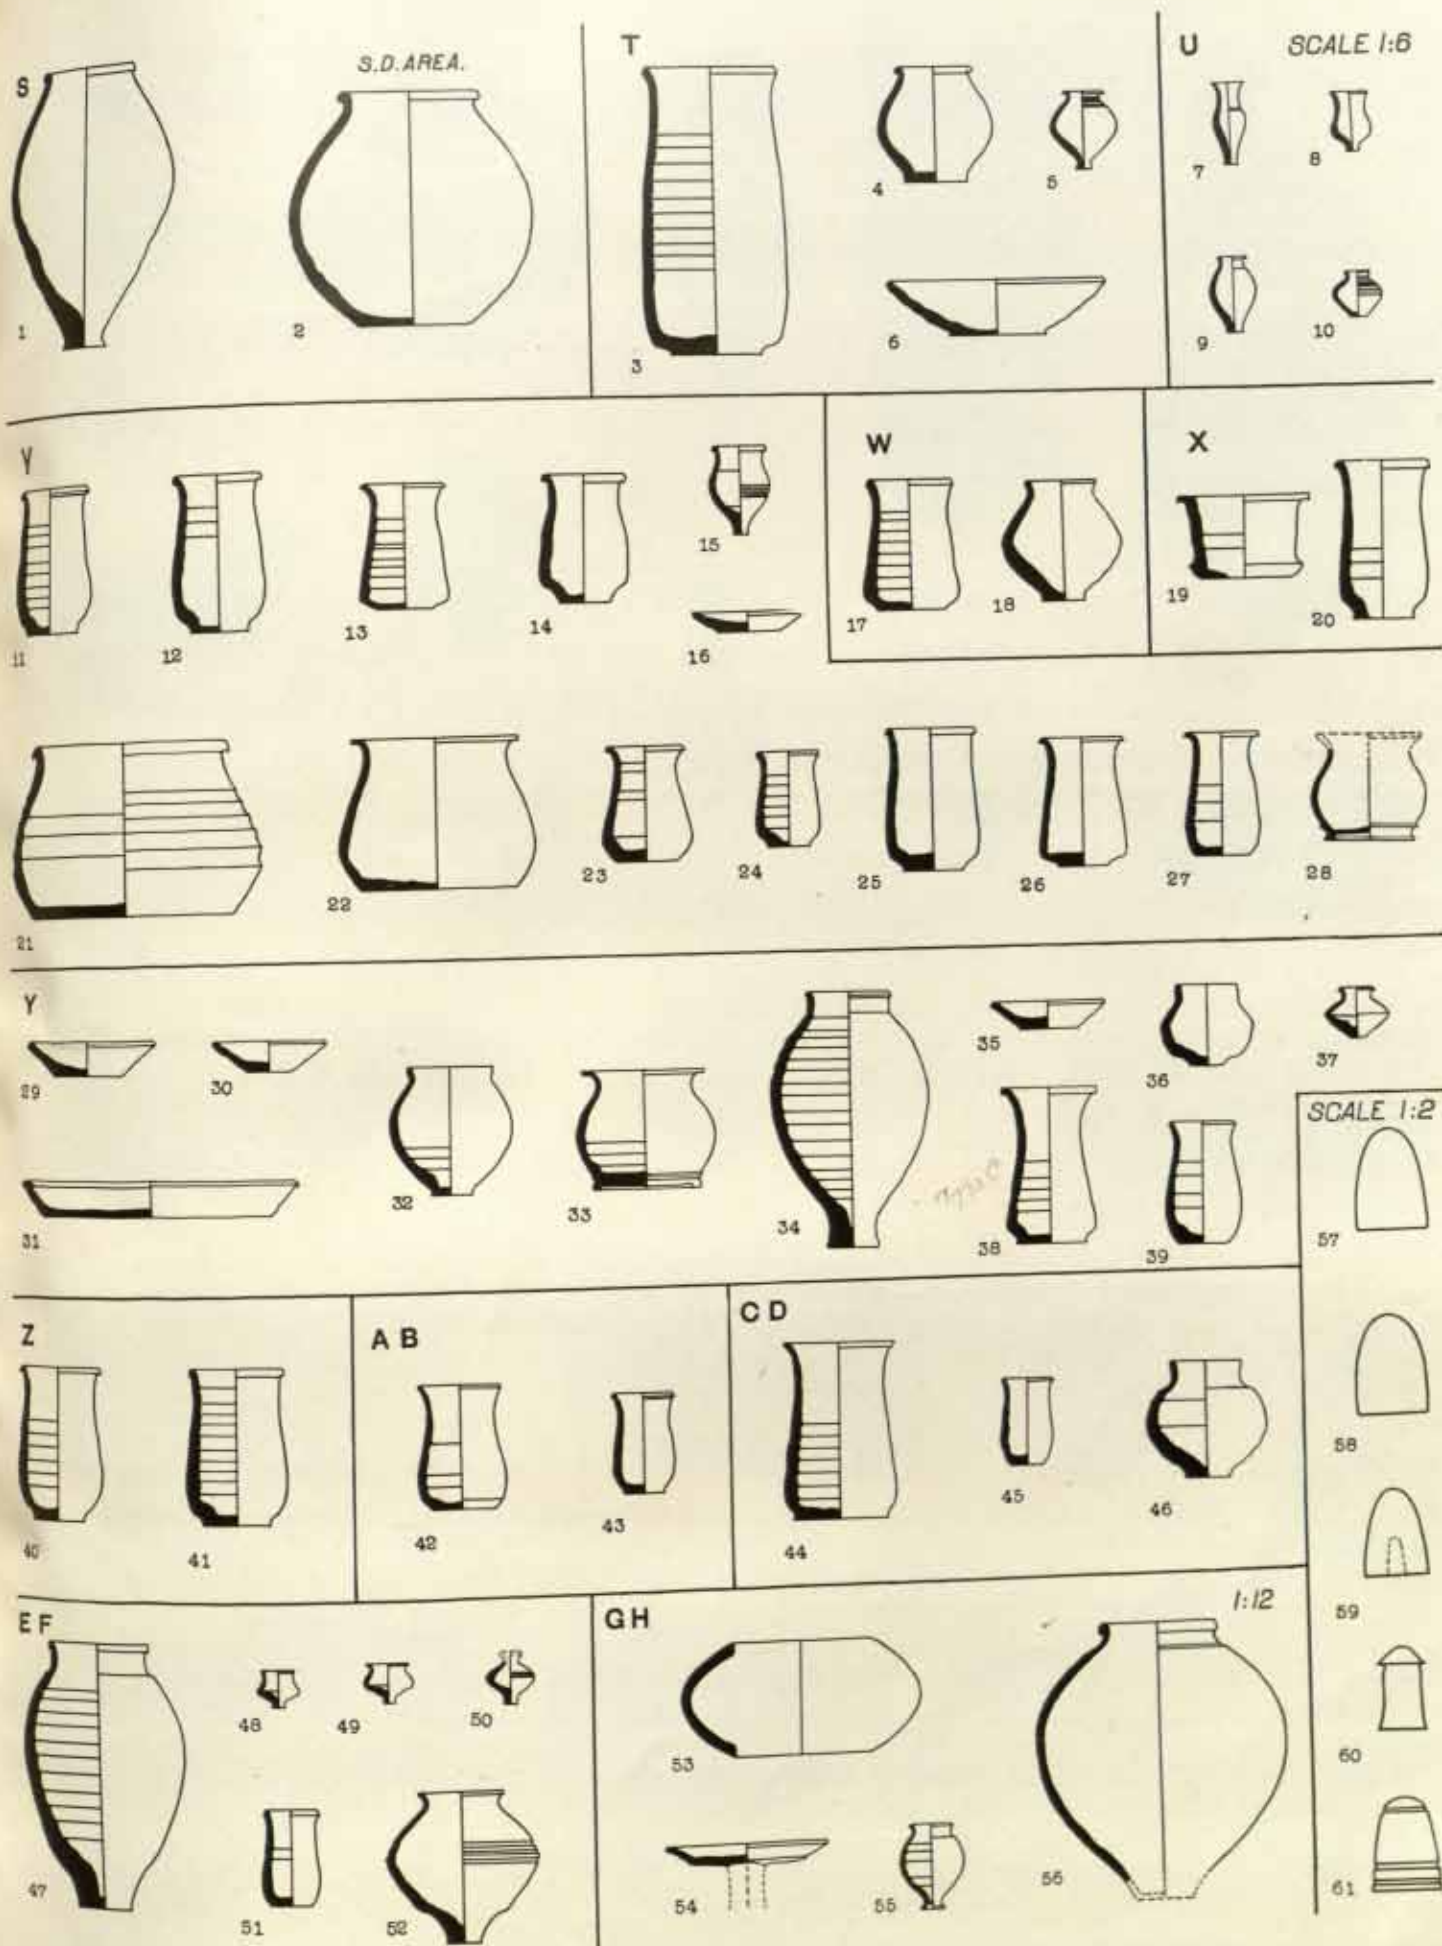 S
S.D. AREA.
T
U
SCALE 1:6
1
2
3
4
5
6
7
8
9
10
V
W
X
11
12
13
14
15
16
17
18
19
20
21
22
23
24
25
26
27
28
Y
29
30
31
32
33
34
35
36
37
38
39
SCALE 1:2
57
58
59
60
61
Z
A B
C D
40
41
42
43
44
45
46
E F
G H
1:12
47
48
49
50
51
52
53
54
55
56